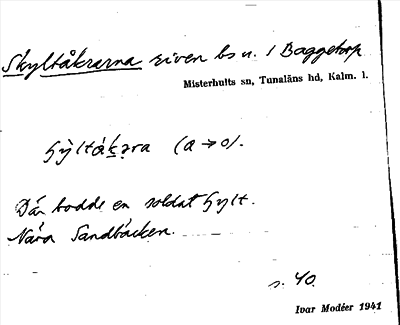 Skyltåkrarna riven bs n. 1 Baggetorp
Misterhults sn, Tunaläns hd, Kalm. l.
(a → o).
Där bodde en soldat Sylt.
Nära Sandbäcken.
s. 40.
Ivar Modéer 1941